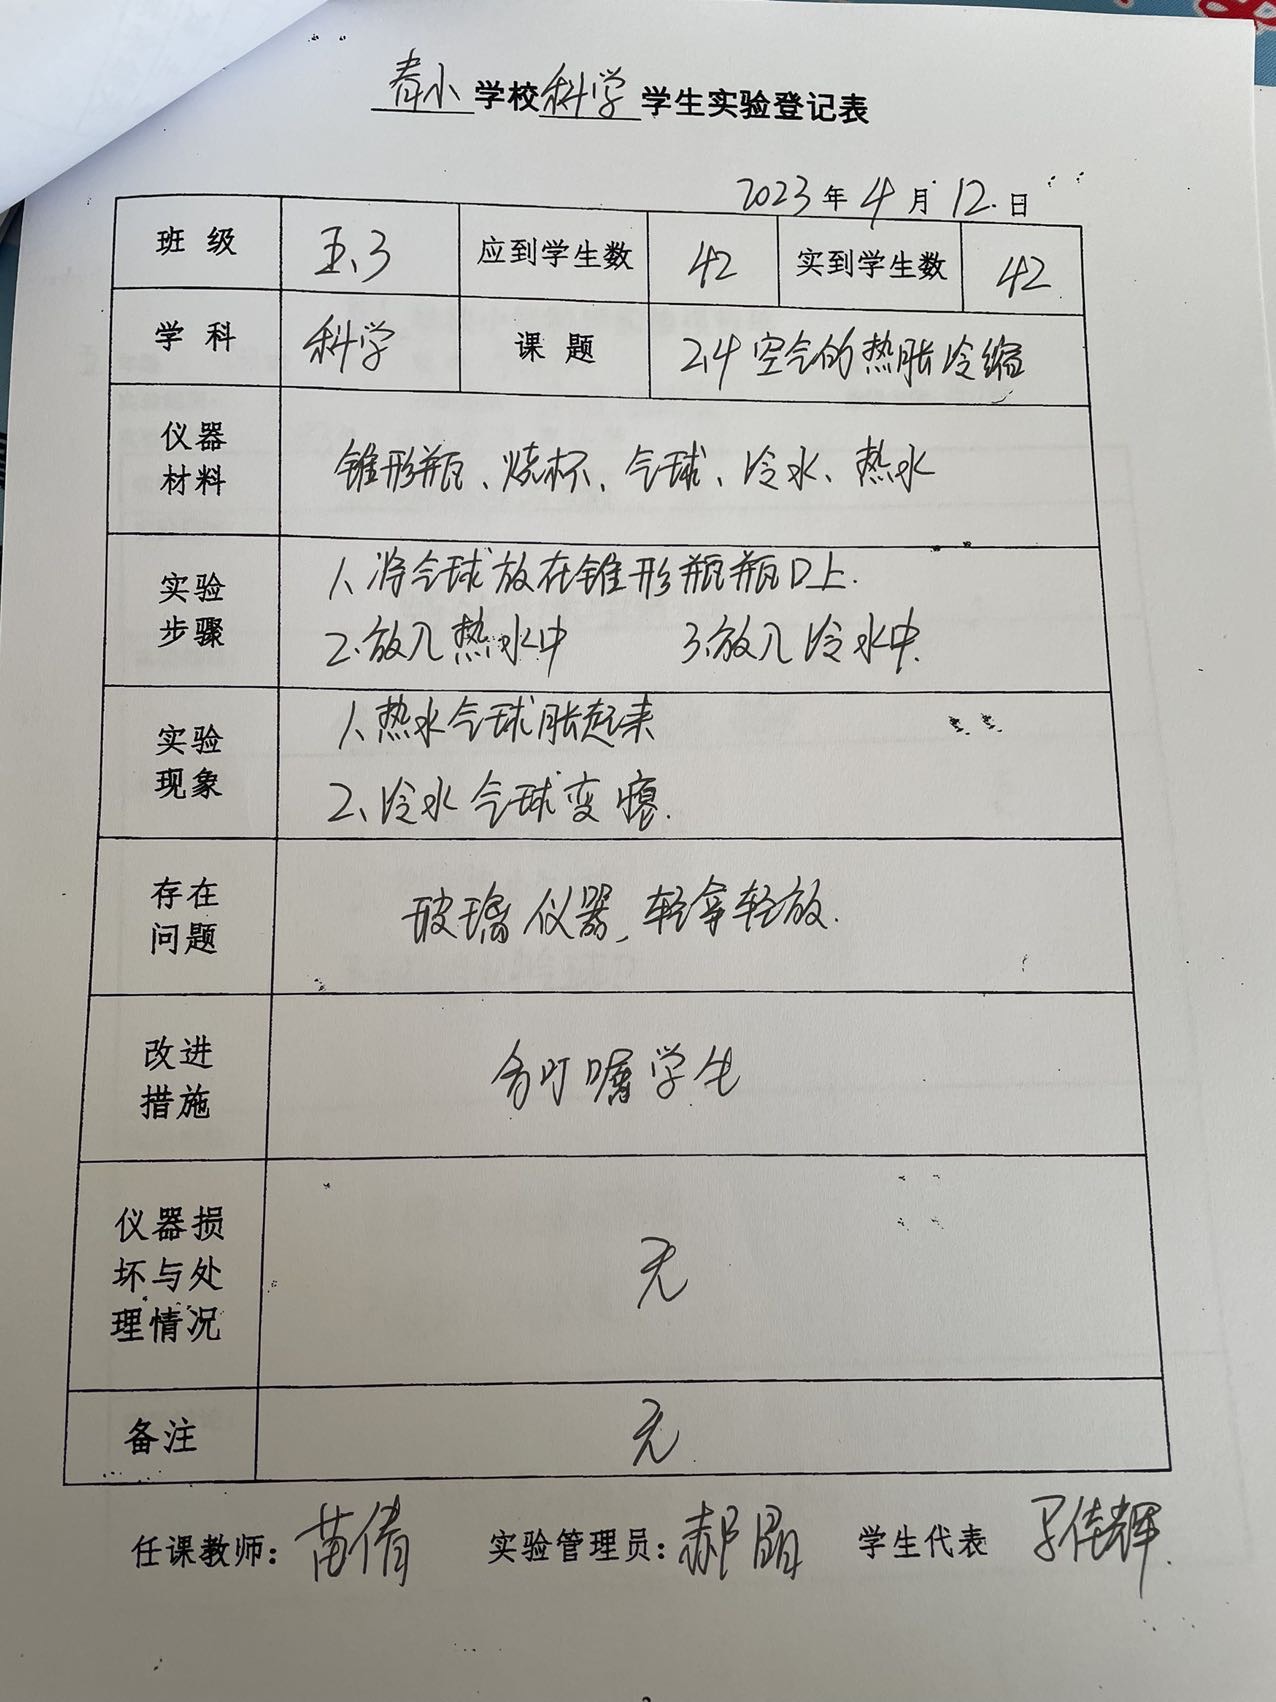 春小学校科学学生实验登记表
2023年4月12日
班级 五.3 应到学生数 42 实到学生数 42
学科 科学 课题 2.4空气的热胀冷缩
仪器
材料
锥形瓶、烧杯、气球、冷水、热水
实验
步骤
1、将气球放在锥形瓶瓶口上.
2、放入热水中 3、放入冷水中.
实验
现象
1、热水气球胀起来
2、冷水气球变瘪.
存在
问题
玻璃仪器,轻拿轻放.
改进
措施
多叮嘱学生
仪器损
坏与处
理情况
无
备注 无
任课教师:苗倩 实验管理员:郝晶 学生代表